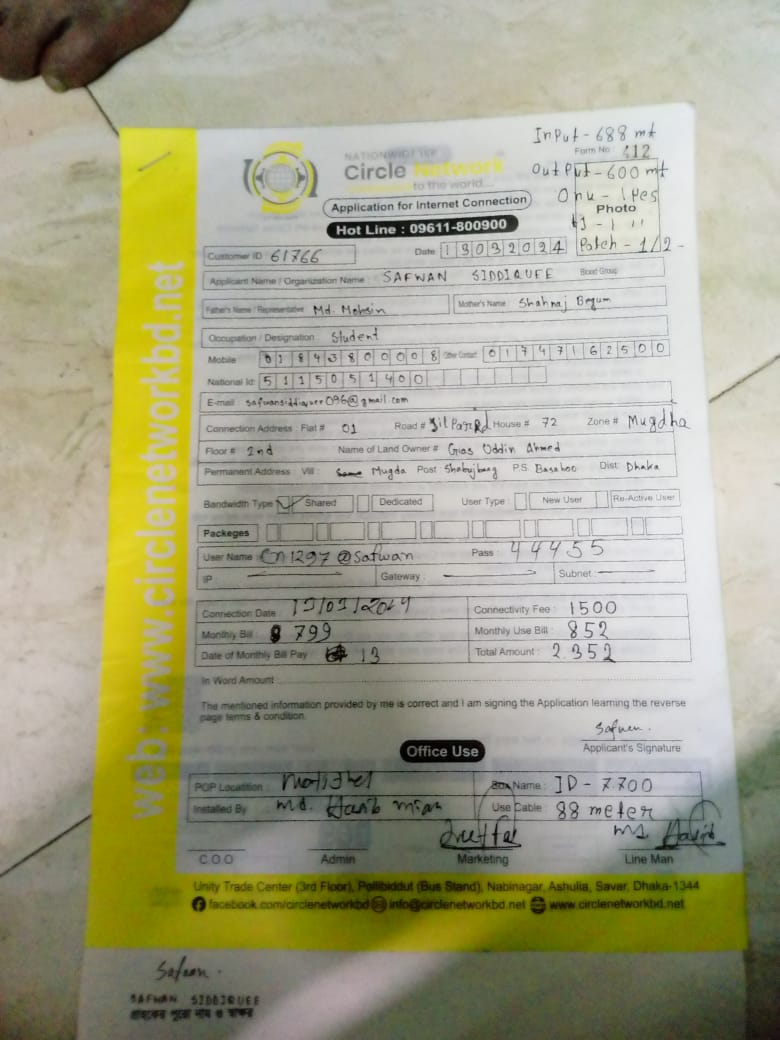 InPut - 688 mt
Form No : 412
NATIONWIDE ISP
Circle Network
OutPut - 600 mt
to the world....
Onu - 1 Pes
Application for Internet Connection
Photo
Hot Line : 09611-800900
Patch - 1/2 -
Customer ID 61766
Date 13032024
Applicant Name / Organization Name : SAFWAN SIDDIQUEE Blood Group
Father's Name / Representative Md. Mohsin Mother's Name : Shahnaj Begum
Occupation / Designation : Student
Mobile 01843800008 Other Contact 01747162500
National Id: 5115051400
E-mail :
Connection Address : Flat # 01 Road # House # 72 Zone # Mugdha
Floor # 2nd Name of Land Owner # Gias Uddin Ahmed
Permanent Address : Vill : Mugda Post Shabujbang P.S. Basaboo Dist: Dhaka
Bandwidth Type Shared Dedicated User Type : New User Re-Active User
Packeges
User Name : Cn1297@Safwan Pass : 44455
IP Gateway : Subnet :
Connection Date : Connectivity Fee : 1500
Monthly Bill : 799 Monthly Use Bill : 852
Date of Monthly Bill Pay 13 Total Amount : 2.352
In Word Amount
The mentioned information provided by me is correct and I am signing the Application learning the reverse
page terms & condition.
Safwan.
Applicant's Signature
Office Use
POP Locattion : Motijhel Box Name : ID - 7.700
Installed By Md. Hasib Mian Use Cable : 88 meter
C.O.O Admin Marketing Line Man
Unity Trade Center (3rd Floor), Pollibiddut (Bus Stand), Nabinagar, Ashulia, Savar, Dhaka-1344
facebook.com/circlenetworkbd info@circlenetworkbd.net www.circlenetworkbd.net
web: www.circlenetworkbd.net
Safwan.
SAFWAN SIDDIQUEE
গ্রাহকের পুরো নাম ও স্বাক্ষর